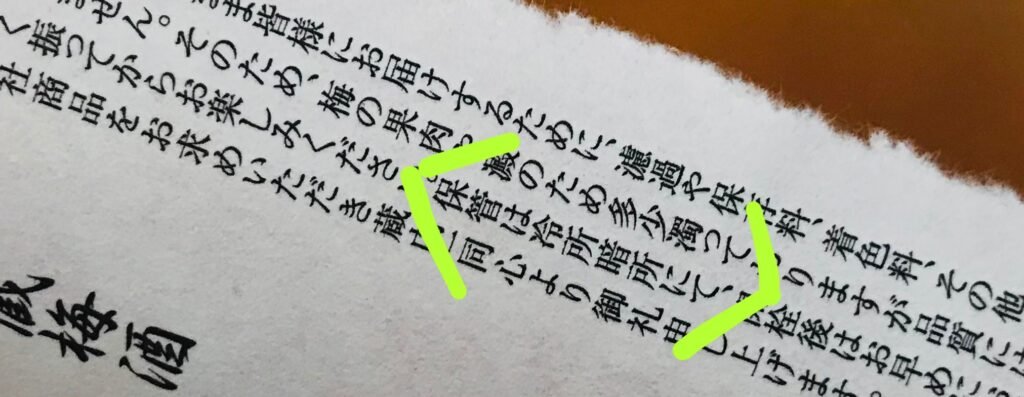 まま皆様にお届けするために、濾過や保存料、着色料、その他
せん。そのため、梅の果肉や澱のため多少濁っておりますが品質には
く振ってからお楽しみください。保管は冷所暗所にて、開栓後はお早めにお
社商品をお求めいただき蔵一同心より御礼申し上げます。
蔵梅酒